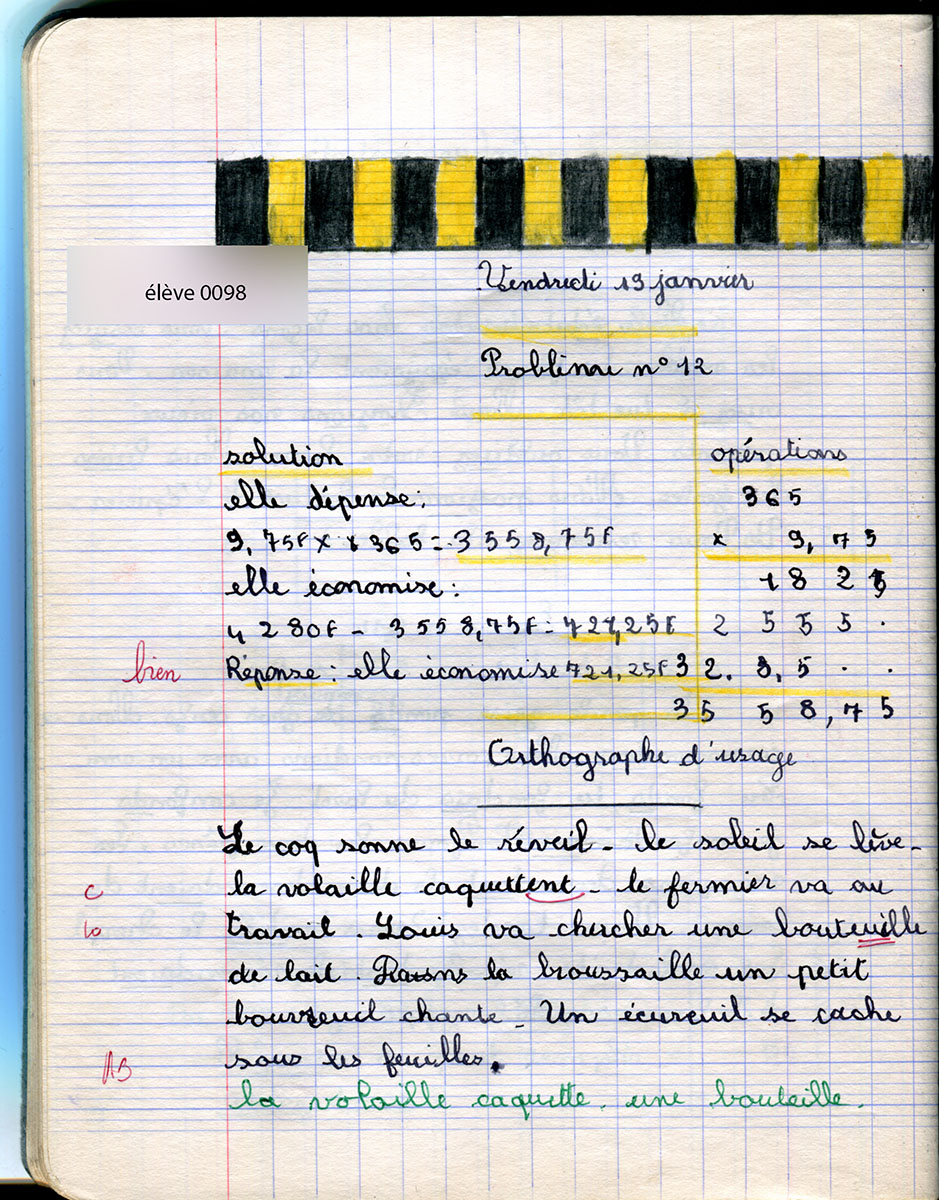 élève 0098
Vendredi 19 janvier
Problème n° 12
solution
opérations
elle dépense :
365
9,75F x x 365 = 3558,75F
x 9,75
elle économise :
1825
4280F - 3558,75F = 721,25F
2555.
bien
Réponse : elle économise 721,25F
32.8,5..
3558,75
Orthographe d'usage
Le coq sonne le réveil. le soleil se lève.
c
la volaille caquettent. le fermier va au
lo
travail. Louis va chercher une bouteuille
de lait. Dans la broussaille un petit
bouvreuil chante. Un écureuil se cache
sous les feuilles.
AB
la volaille caquette. une bouteille.